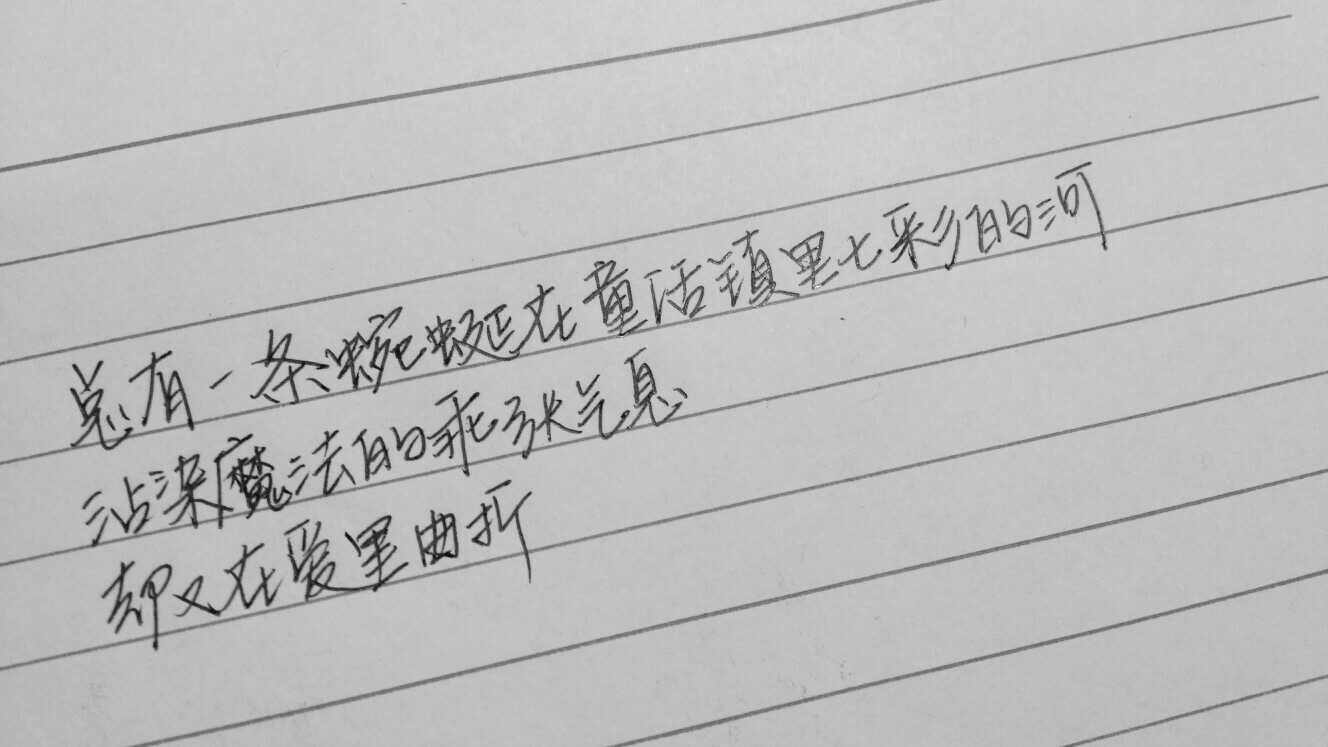 总有一条蜿蜒在童话镇里七彩的河
沾染魔法的乖张气息
却又在爱里曲折